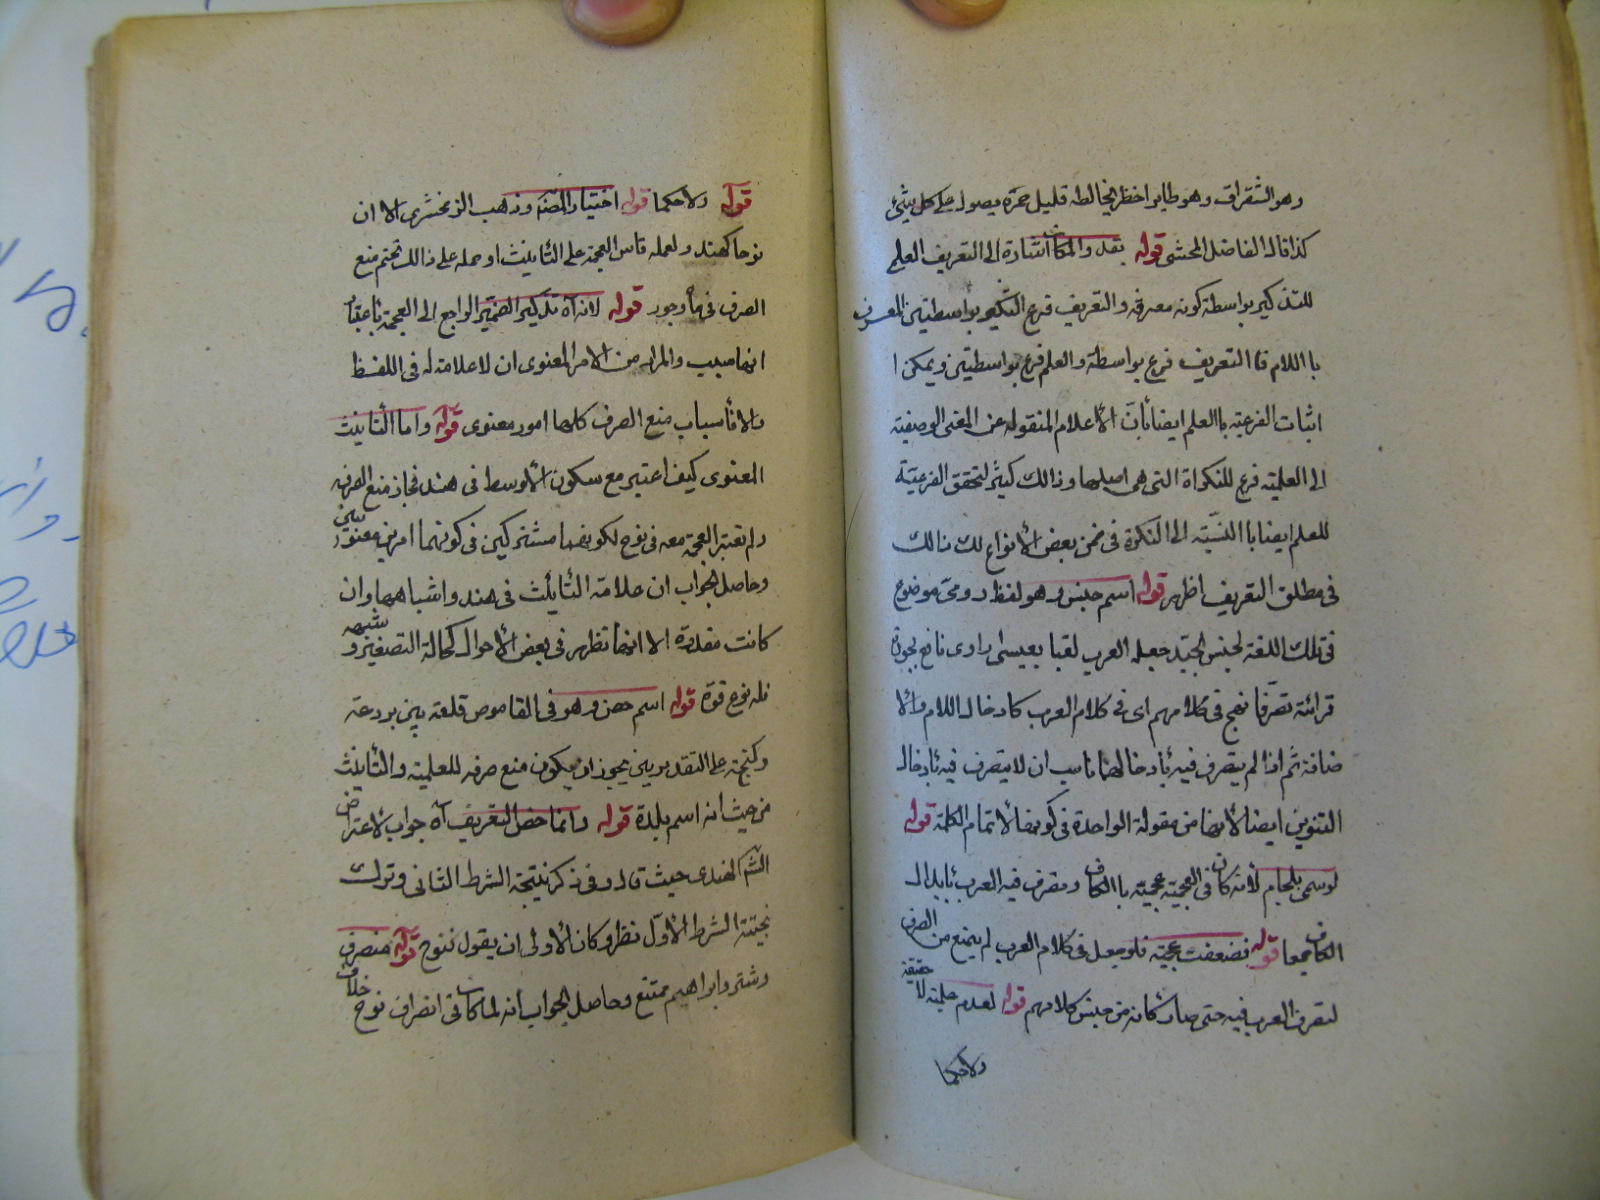 وهو الشقراق وهو طاير اخظر يخالطه قليل حمرة يصول على كل شئ
كذا قال الفاضل المحشى قوله بقد والمكان اشارة الى التعريف العلم
للتذكير بواسطة كونه معرفة والتعريف فرع التنكير بواسطتين المعرف
با اللام فا التعريف فرع بواسطة والعلم فرع بواسطتين ويمكن ا
اثبات الفرعية با العلم ايضا بأن الأعلام المنقولة عن المعنى الوصفية
الى العلمية فرع للنكراة التى هى اصلها وذالك كثير لتحقق الفرعية
للعلم ايضا با النسبة الى النكرة فى ضمن بعض الأنواع لك ذالك
فى مطلق التعريف اظهر قوله اسم جنس وهو لفظ رومى موضوع
فى تلك اللغة لجنس الجيد جعله العرب لقبا بعيسى راوى نافع لجودة
قرائته تصرفا نهج فى كلامهم اى فى كلام العرب كادخال اللام والا
ضافة ثم اذا لم يتصرف فيه بأدخالها ناسب ان لا يتصرف فيه بأدخال
التنوين ايضا لأنها من مقولة الواحدة فى كونها لاتمام الكلمة قوله
لوسمى بلجام لأنه كان فى العجمية عجمية با الكاف ومصرف فيه العرب بأبدال
الكاف جيما قوله فضعفت عجمية فلو جعل فى كلام العرب لم يمنع من الصرف
لتصرف العرب فيه حتى صار كانه من جنس كلامهم قوله لعدم علمية لا حقيقة
ولا حكما
قوله ولا حكما قوله اختيار المصنف وذهب الزمخشرى الا ان
نوحا كهند ولعله قاس العجمة على التأنيث او حمله على ذالك تحتم منع
الصرف فى ماه وجور قوله لانه اه تذكير الضمير الراجع الى العجمة باعتبار
انها سبب والمراد من الامر المعنوى ان لا علامة له فى اللفظ
والا فأسباب منع الصرف كلها امور معنوى قوله واما التأنيث
المعنوى كيف اعتبر مع سكون الأوسط فى هند فجاز منع الصرف
ولم تعتبر العجمة معه فى نوح لكونهما مشتركين فى كونهما امرين معنويين
وحاصل الجواب ان علامة التأنيث فى هند واشباهها وان
كانت مقدرة الا انها تظهر فى بعض الأحوال كحالة التصغير وشبهه
فله نوع قوة قوله اسم حصن وهو فى القاموس قلعة بين بردعة
وكنجة على التقديرين يجوز ان يكون منع صرفه للعلمية والتأنيث
من حيث انه اسم بلدة قوله وانما خص التعريف اه جواب لاعتراض
الشم الهندى حيث قال وفى ذكر نتيجة الشرط الثانى وترك
نجيتة الشرط الأول نظر وكان الأولى ان يقول فنوح قوله منصرف
وشتر وابراهيم ممتنع وحاصل الجواب أنه لما كان فى انصراف نوح خلاف